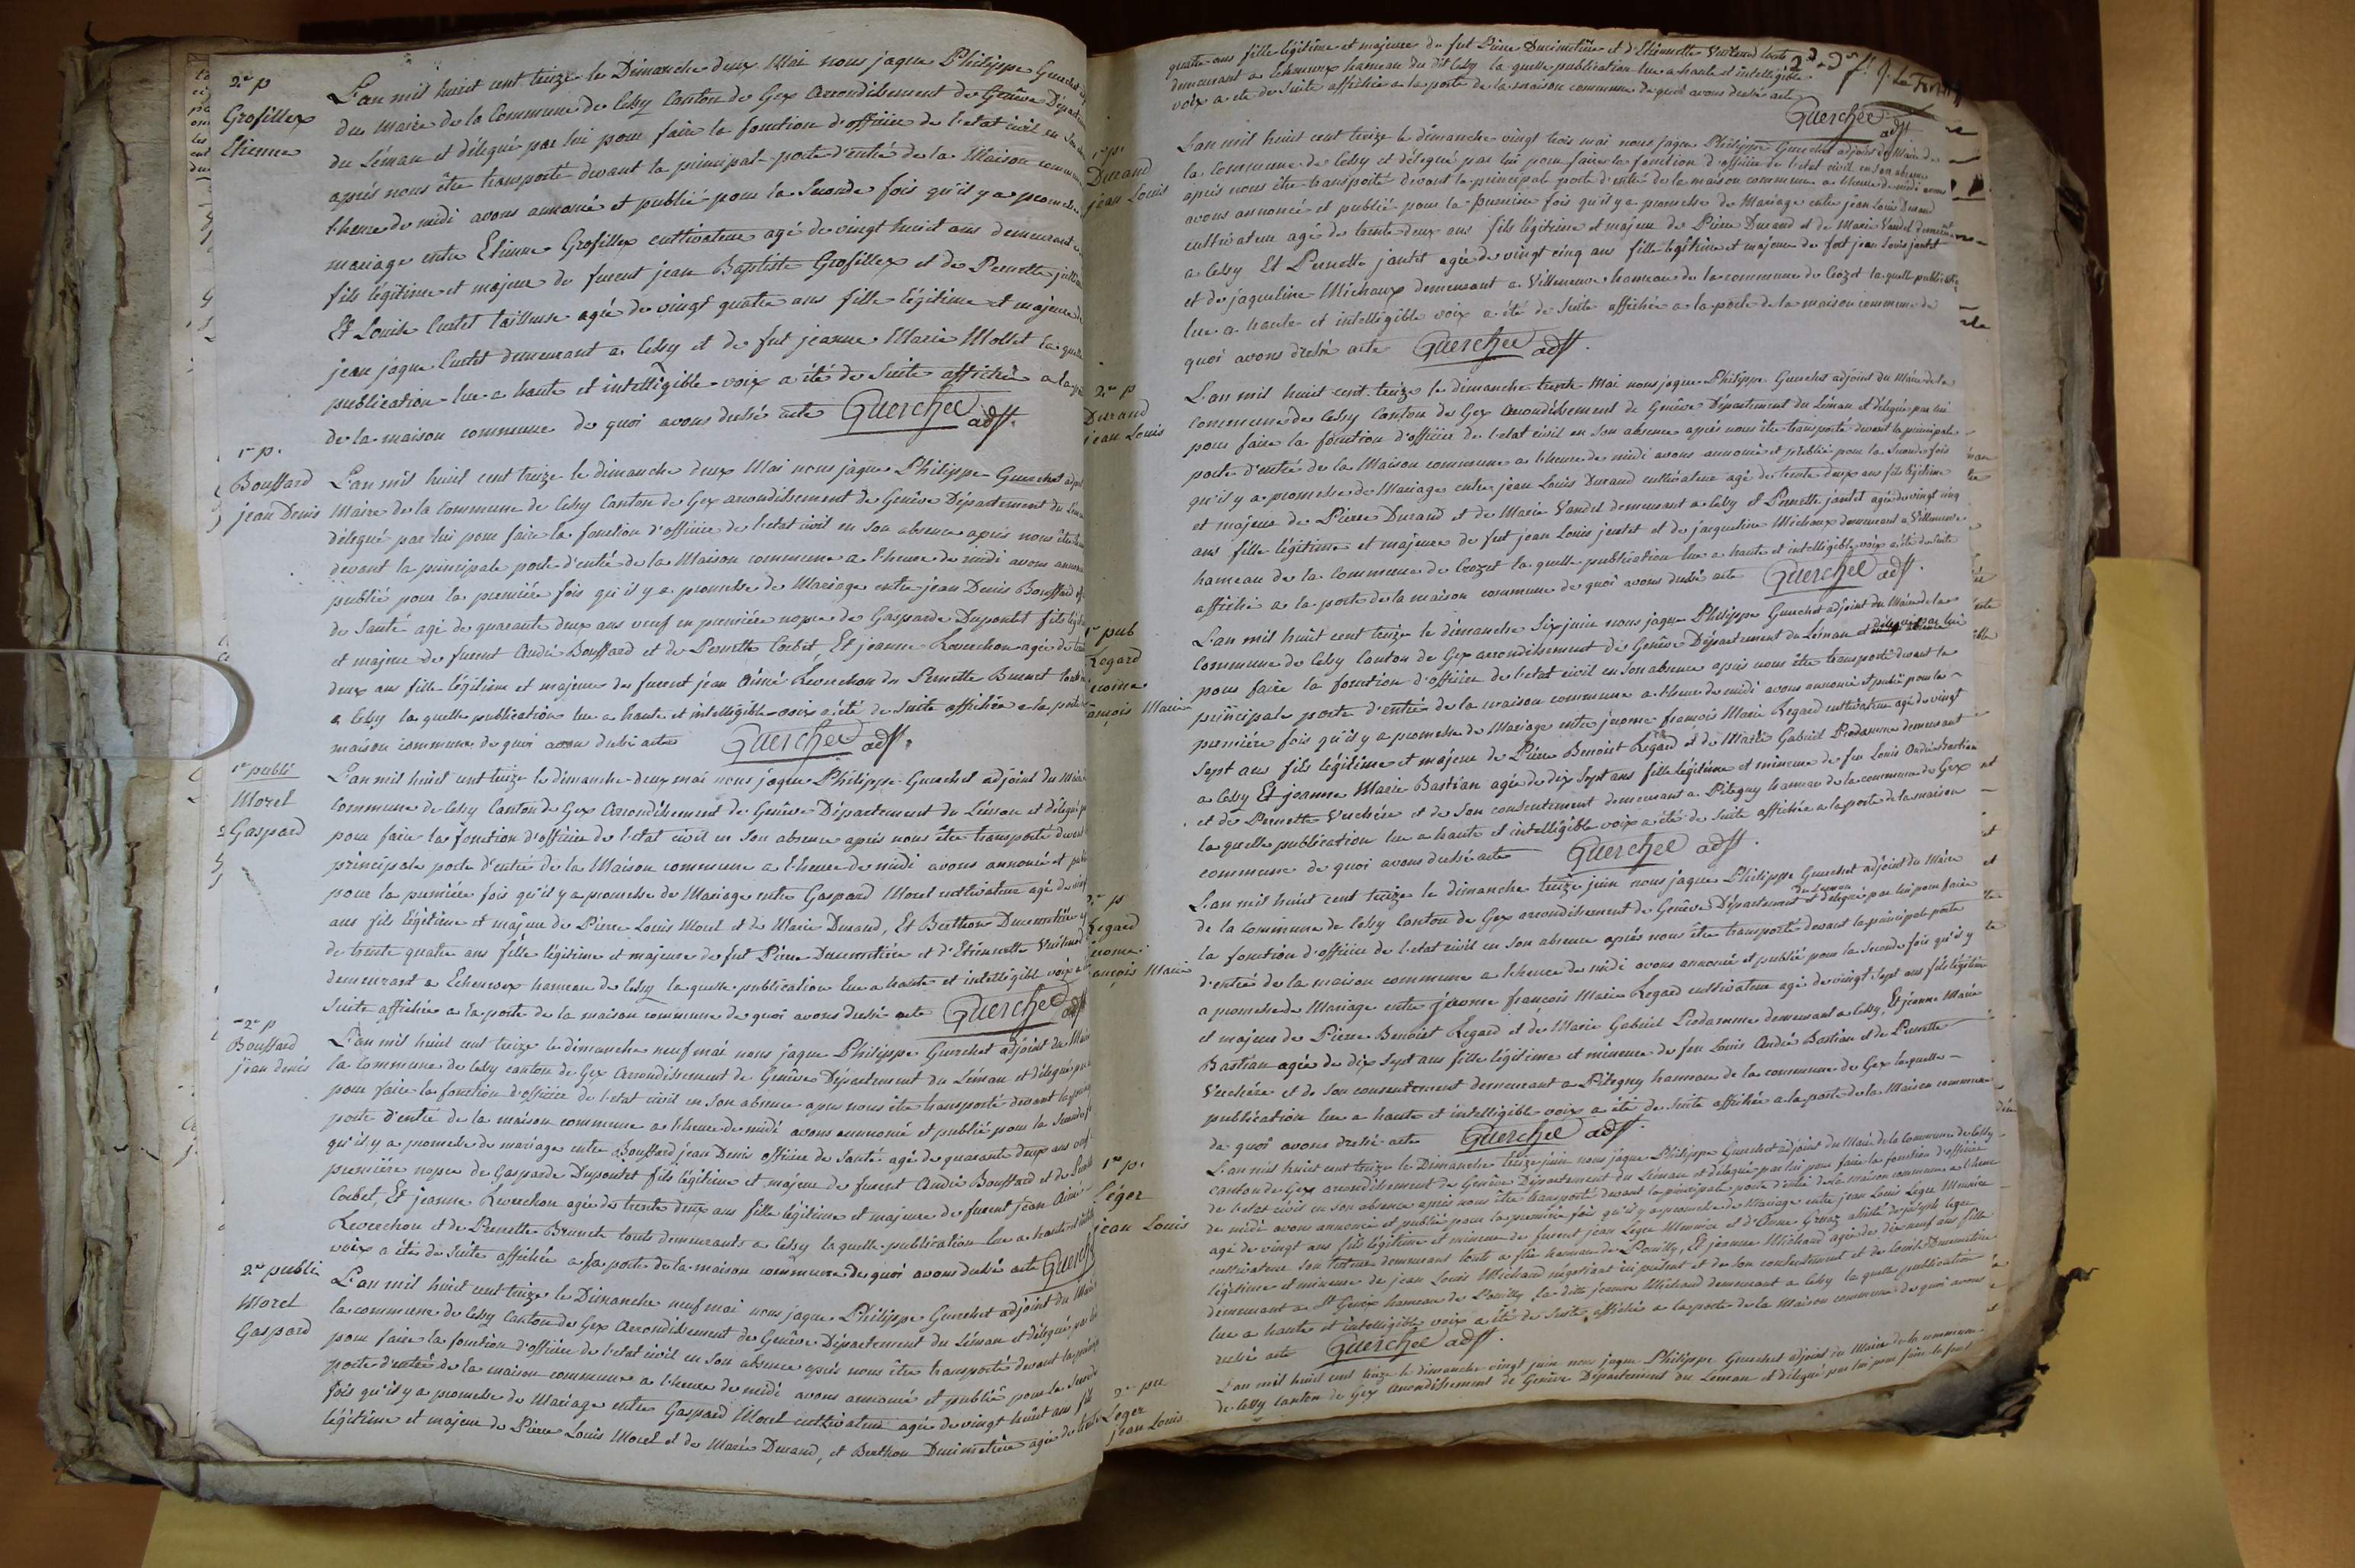 2e p
Grofillex
Etienne
L'an mil huit cent treize le Dimanche deux Mai nous jaque Philippe Guerchet
du Maire de la Commune de Cessy Canton de Gex Arrondissement de Genêve
du Léman et délegué par lui pour faire la fonction d'officier de l'etat civil en
aprés nous être transporté devant la principal porte d'entré de la Maison
l'heure de midi avons annoncé et publié pour la seconde fois qu'il y a
mariage entre Etienne Grofillex cultivateur agé de vingt huit ans demeurant
fils légitime et majeur de furent jean Baptiste Grofillex et de Pernette
Et Louise tailleuse agée de vingt quatre ans fille légitime et majeure
jean jaque demeurant a Cessy et de fut jeanne Marie Mollet la
publication lue a haute et intelligible voix a été de suite affichée a la
de la maison commune de quoi avons dressé acte Guerchet adjt.
1re p.
Boussard
jean Denis
L'an mil huit cent treize le dimanche deux Mai nous jaque Philippe Guerchet
Maire de la Commune de Cessy Canton de Gex arrondissement de Genêve Département du
délegué par lui pour faire la fonction d'officier de l'etat civil en son absence apres nous être
devant la principale porte d'entré de la Maison commune a l'heure de midi avons
publié pour la premiére fois qu'il y a promesse de Mariage entre jean Denis Boussard
de Santé agé de quarante deux ans veuf en premiére nopce de Gasparde Dupontet fils
et majeur de furent André Boussard et de Pernette Corbet, Et jeanne Reverchon agée de
deux ans fille légitime et majeure de furent jean Aimé Reverchon de Pernette Brunet
a Cessy la quelle publication lue a haute et intelligible voix a été de suite affichée a la porte
maison commune de quoi avons dressé acte Guerchet adjt.
1re publi
Morel
Gaspard
L'an mil huit cent treize le dimanche deux mai nous jaque Philippe Guerchet adjoint du
Commune de Cessy Canton de Gex Arrondissement de Genêve Département du Léman et
pour faire la fonction d'officier de l'etat civil en son absence apres nous être transporté
principale porte d'entré de la Maison commune a l'heure de midi avons annoncé et
pour la premiére fois qu'il y a promesse de Mariage entre Gaspard Morel cultivateur agé de
ans fils légitime et majeur de Pierre Louis Morel et de Marie Durand, Et Berthon
de trente quatre ans fille légitime et majeure de fut Pierre et d'Etiennette
demeurant a Echenevex hameau de Cessy la quelle publication lue a haute et intelligible voix a
suite affichée a la porte de la maison commune de quoi avons dressé acte Guerchet adjt
2e p
Boussard
jean denis
L'an mil huit cent treize le dimanche neuf mai nous jaque Philippe Guerchet adjoint du
la Commune de Cessy canton de Gex Arrondissement de Genêve Département du Léman et délegué
pour faire la fonction d'officier de l'etat civil en son absence apres nous être transporté devant la
porte d'entré de la maison commune a l'heure de midi avons annoncé et publié pour la
qu'il y a promesse de mariage entre Boussard jean Denis officier de Santé agé de quarante deux ans
premiére nopce de Gasparde Dupontet fils légitime et majeur de furent André Boussard et de
Corbet, Et jeanne Reverchon agée de trente deux ans fille légitime et majeure de furent jean Aimé
Reverchon et de Pernette Brunet touts demeurants a Cessy la quelle publication lue a haute et
voix a été de suite affichée a la porte de la maison commune de quoi avons dressé acte
2e publi
Morel
Gaspard
L'an mil huit cent treize le Dimanche neuf mai nous jaque Philippe Guerchet adjoint du
la commune de Cessy Canton de Gex Arrondissement de Genêve Département du Léman et délegué
pour faire la fonction d'officier de l'etat civil en son absence aprés nous être transporté devant la
porte d'entré de la maison commune a l'heure de midi avons annoncé et publié pour la
fois qu'il y a promesse de Mariage entre Gaspard Morel cultivateur agé de vingt huit ans fils
légitime et majeur de Pierre Louis Morel et de Marie Durand, et Berthon agée de
quatre ans fille légitime et majeure de fut Pierre et d'Etiennette touts
demeurant a Echenevex hameau du dit Cessy la quelle publication lue a haute et intelligible
voix a ete de suite affichée a la porte de la maison commune de quoi avons dressé acte
Guerchet adjt
1re p.
Durand
jean Louis
L'an mil huit cent treize le dimanche vingt trois mai nous jaque Philippe Guerchet adjoint du Maire de
la commune de Cessy et délegué par lui pour faire la fonction d'officier de l'etat civil en son absence
apres nous être transporté devant la principale porte d'entré de la maison commune a l'heure de midi
avons annoncé et publié pour la premiére fois qu'il y a promesse de Mariage entre jean Louis Durand
cultivateur agé de trente deux ans fils légitime et majeur de Pierre Durand et de Marie Vandel
a Cessy Et Pernette jantet agée de vingt cinq ans fille légitime et majeure de fut jean Louis jantet
et de jaqueline Michaux demeurant a Villeneuve hameau de la commune de Crozet la quelle
lue a haute et intelligible voix a été de suite affichée a la porte de la maison commune de
quoi avons dressé acte Guerchet adjt.
2e p
Durand
jean Louis
L'an mil huit cent treize le dimanche trente Mai nous jaque Philippe Guerchet adjoint du Maire de la
commune de Cessy Canton de Gex Arrondissement de Genêve Département du Léman et délegué par lui
pour faire la fonction d'officier de l'etat civil en son absence aprés nous être transporté devant la principale
porte d'entré de la Maison commune a l'heure de midi avons annoncé et publié pour la seconde fois
qu'il y a promesse de Mariage entre jean Louis Durand cultivateur agé de trente deux ans fils légitime
et majeur de Pierre Durand et de Marie Vandel demeurant a Cessy Et Pernette jantet agée de vingt cinq
ans fille légitime et majeure de fut jean Louis jantet et de jaqueline Michaux demeurant a Villeneuve
hameau de la Commune de Crozet la quelle publication lue a haute et intelligible voix a été de suite
affichée a la porte de la maison commune de quoi avons dressé acte Guerchet adjt.
1re pub
Regard
L'an mil huit cent treize le dimanche six juin nous jaque Philippe Guerchet adjoint du Maire de la
commune de Cessy Canton de Gex arrondissement de Genêve Département du Léman et délegué par lui
pour faire la fonction d'officier de l'etat civil en son absence aprés nous être transporté devant la
principale porte d'entrée de la maison commune a l'heure de midi avons annoncé et publié pour la
premiére fois qu'il y a promesse de Mariage entre jerome françois Marie Regard cultivateur agé de vingt
sept ans fils légitime et majeur de Pierre Benoist Regard et de Marie Gabriel Prodamme demeurant
a Cessy Et jeanne Marie Bastian agée de dix sept ans fille légitime et mineure de feu Louis André Bastian
et de Pernette Verchére et de son consentement demeurant a Pitegny hameau de la commune de Gex
la quelle publication lue a haute et intelligible voix a été de suite affichée a la porte de la maison
commune de quoi avons dressé acte Guerchet adjt.
2e p
Regard
L'an mil huit cent treize le dimanche treize juin nous jaque Philippe Guerchet adjoint du Maire
de la commune de Cessy Canton de Gex arrondissement de Genêve Département du Leman et délegué par lui pour faire
la fonction d'officier de l'etat civil en son absence aprés nous être transporté devant la principale porte
d'entré de la maison commune a l'heure de midi avons annoncé et publié pour la seconde fois qu'il y
a promesse de Mariage entre jerome françois Marie Regard cultivateur agé de vingt sept ans fils légitime
et majeur de Pierre Benoist Regard et de Marie Gabriel Prodamme demeurant a Cessy, Et jeanne Marie
Bastian agée de dix sept ans fille légitime et mineure de feu Louis André Bastian et de Pernette
Verchére et de son consentement demeurant a Pitegny hameau de la commune de Gex la quelle
publication lue a haute et intelligible voix a été de suite affichée a la porte de la Maison commune
de quoi avons dressé acte Guerchet adjt.
1re p.
Léger
jean Louis
L'an mil huit cent treize le Dimanche treize juin nous jaque Philippe Guerchet adjoint du Maire de la Commune de Cessy
canton de Gex arrondissement de Genêve Département du Léman et délegué par lui pour faire la fonction d'officier
de l'etat civil en son absence aprés nous être transporté devant la principale porte d'entré de la maison commune a l'heure
de midi avons annoncé et publié pour la premiére fois qu'il y a promesse de Mariage entre jean Louis Leger
agé de vingt ans fils légitime et mineur de furent jean Léger et d'Anne Grenaz de joseph leger
cultivateur son tuteur demeurant touts a hameau de Pouilly, Et jeanne Michaud agée de dix neuf ans fille
légitime et mineure de jean Louis Michaud négotiant ici présent et de son consentement et de Louise
demeurant a St Genix hameau de Pouilly la dite jeanne Michaud demeurant a Cessy la quelle publication
lue a haute et intelligible voix a été de suite affichée a la porte de la Maison commune de quoi avons
dressé acte Guerchet adjt.
2e pu
Leger
jean Louis
L'an mil huit cent treize le dimanche vingt juin nous jaque Philippe Guerchet adjoint du Maire de la commune
de Cessy Canton de Gex Arrondissement de Genêve Département du Leman et délegué par lui pour faire la